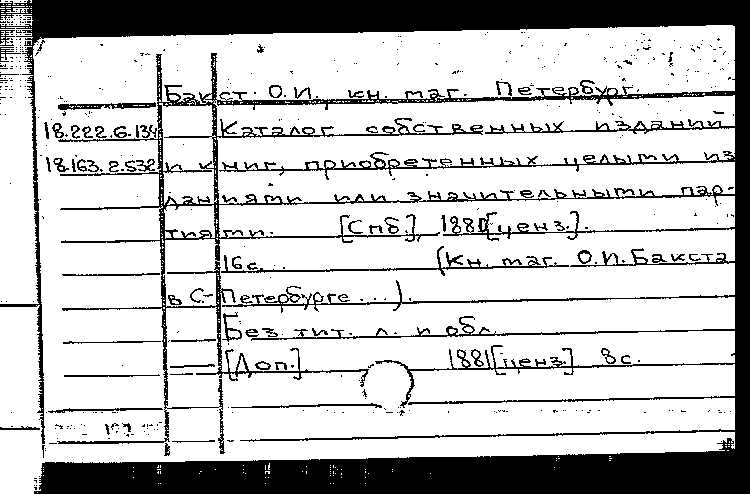 Бакст. О.И., кн. маг. Петербург.
18.222.6.134 Каталог собственных изданий
18.163.2.532 и книг, приобретенных целыми из
даниями или значительными пар-
тиями. [Спб.], 1881[ценз.].
16с. (Кн. маг. О.И. Бакста
в С-Петербурге...).
Без тит. л. и обл.
[Доп.]. 1881[ценз.] 8с.